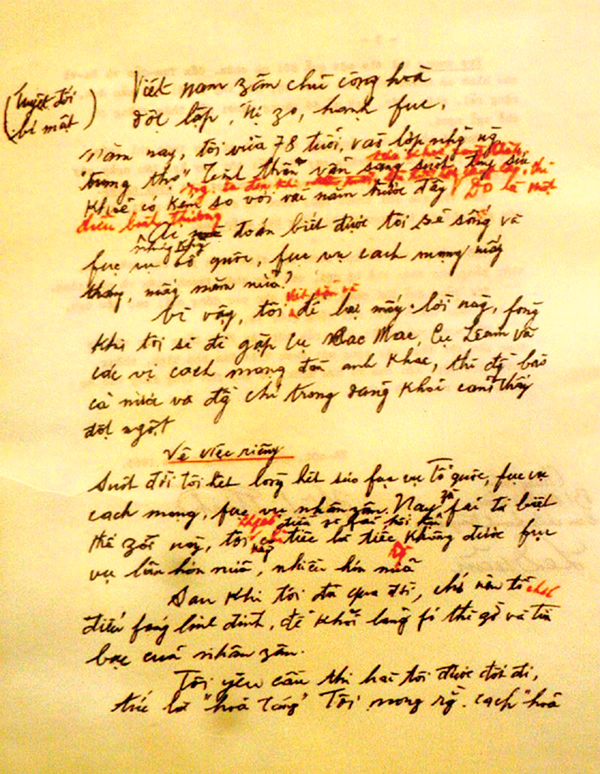 (Tuyệt đối
bí mật)
Việt nam zân chủ cộng hoà
độc lập, tự zo, hạnh fúc.
Năm nay, tôi vừa 78 tuổi, vào lớp những ng
"trung thọ". Tinh thần vẫn sáng suốt, tuy sức
khoẻ có kém so với vài năm trước đây. Đó là một
điều bình thường.
Ai mà đoán biết được tôi sẽ sống và
fục vụ tổ quốc, fục vụ cách mạng mấy
tháng, mấy năm nữa?
Vì vậy, tôi viết sẵn và để lại mấy lời này, fòng
khi tôi sẽ đi gặp cụ Các Mác, cụ Lenin và
các vị cách mạng đàn anh khác, thì đồng bào
cả nước và đồng chí trong đảng khỏi cảm thấy
đột ngột.
Về việc riêng
Suốt đời tôi hết lòng hết sức fục vụ tổ quốc, fục vụ
cách mạng, fục vụ nhân zân. Nay zù fải từ biệt
thế zới này, tôi không có điều gì fải hối hận,
chỉ tiếc là tiếc không được fục
vụ lâu hơn nữa, nhiều hơn nữa.
Sau khi tôi đã qua đời, chớ nên tổ chức
điếu fúng linh đình, để khỏi lãng fí thì giờ và tiền
bạc của nhân zân.
Tôi yêu cầu thi hài tôi được đốt đi,
tức là "hoả táng". Tôi mong rằng cách "hoả